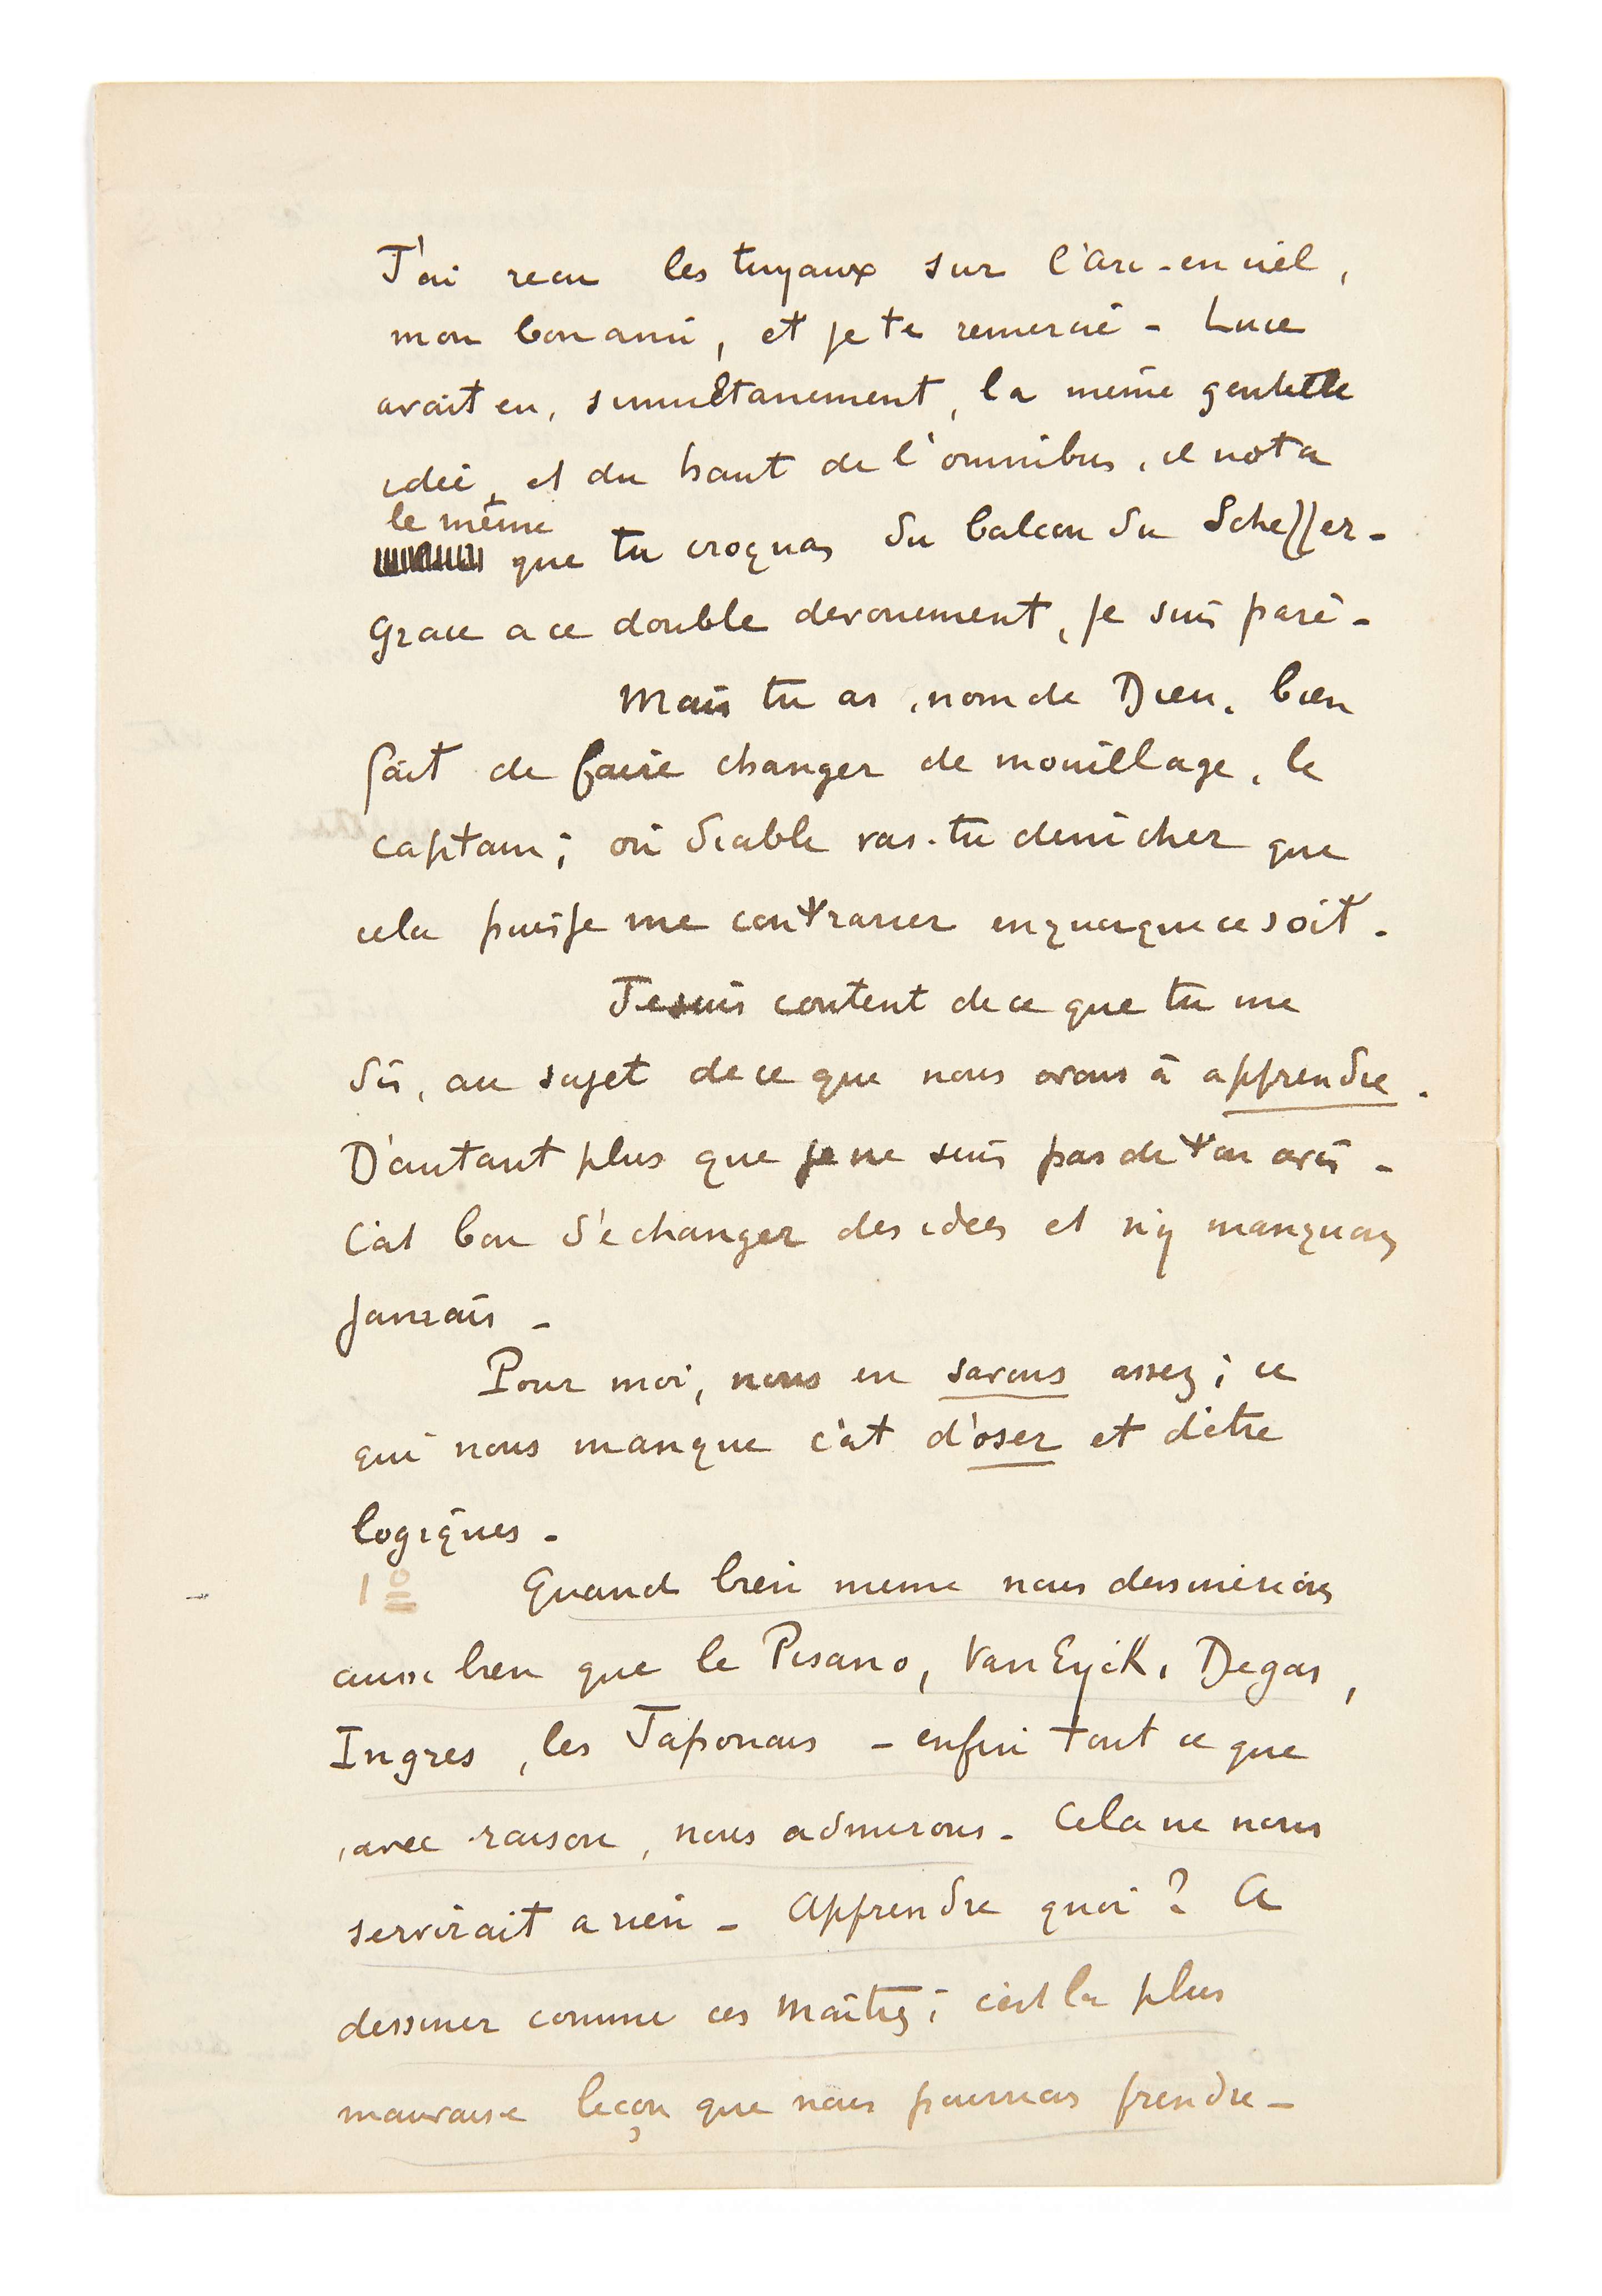 J'ai recu les tuyaux sur l'Arc-en-ciel,
mon bon ami, et je te remercie - Luce
avait eu, simultanement, la même gentille
idée, et du haut de l'omnibus, il nota
le même
que tu croquas du balcon du Scheffer -
Grace a ce double devouement, je suis paré -
Mais tu as, nom de Dieu, bien
fait de faire changer de mouillage, le
capitaine; où diable vas-tu denicher que
cela puisse me contrarier en quoi que ce soit.
Je suis content de ce que tu me
dis, au sujet de ce que nous avons à apprendre.
D'autant plus que je ne suis pas de ton avis -
C'est bon d'echanger des idées et n'y manquons
jamais -
Pour moi, nous en savons assez; ce
qui nous manque c'est d'oser et d'être
logiques -
Quand bien meme nous dessinerions
aussi bien que le Pisano, Van Eyck, Degas,
Ingres, les Japonais - enfin tout ce que
, avec raison, nous admirons - Cela ne nous
servirait a rien - Apprendre quoi? A
dessiner comme ces Maîtres; c'est la plus
mauvaise leçon que nous pourrions prendre -